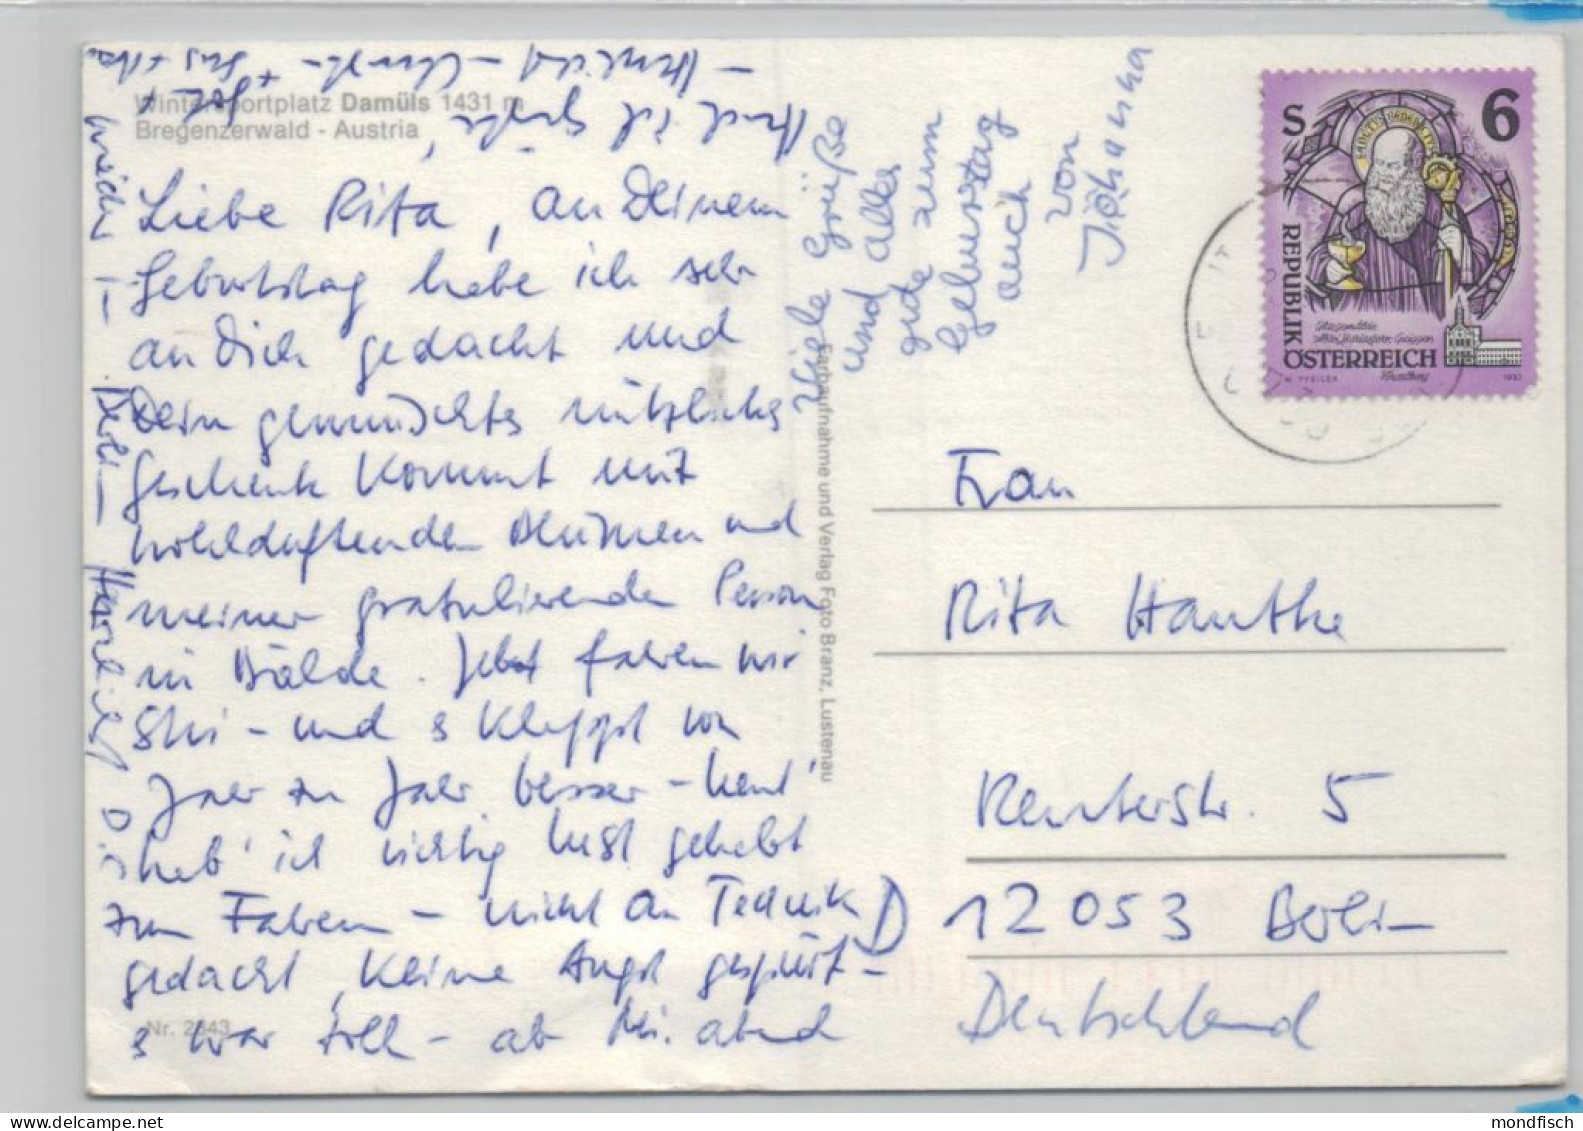 Wintersportplatz Damüls 1431 m
Bregenzerwald - Austria
Liebe Rita, an Deinem
Geburtstag habe ich sehr
an Dich gedacht und
Dein gewünschtes nützliches
Geschenk kommt mit
wohlduftenden Blumen und
meiner gratulierenden Person
in Bälde. Jetzt fahren wir
Ski - und s klappt von
Jahr zu Jahr besser - heut'
hab' ich richtig Lust gehabt
zum Fahren - nicht an Technik
gedacht, keine Angst gespürt -
s war toll - ab Mi. abend
wieder in Berlin - Herzlichst
Viele Grüße
und alles
gute zum
Geburtstag
auch
von
Johanna
Farbaufnahme und Verlag Foto Branz, Lustenau
Nr. 2843
S 6
REPUBLIK
ÖSTERREICH
Frau
Rita Hantke
Reuterstr. 5
D 12053 Berlin
Deutschland
www.delcampe.net
mondfisch